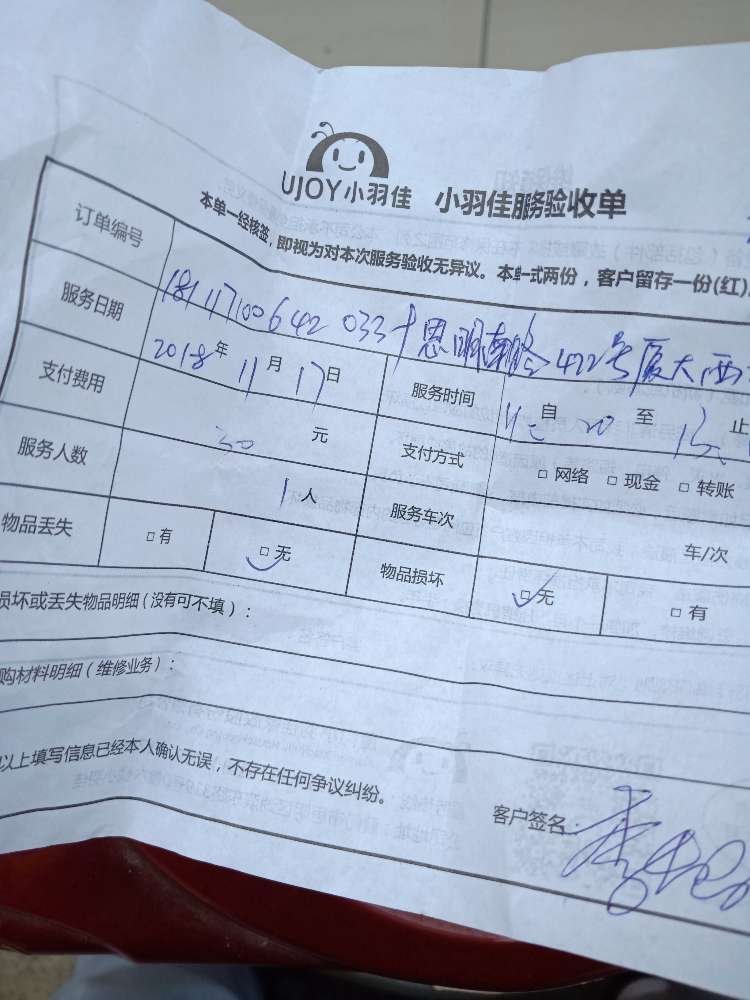 UJOY小羽佳 小羽佳服务验收单
本单一经核签，即视为对本次服务验收无异议。本单一式两份，客户留存一份(红)
订单编号 18111700642033 思明南路422号厦大西
服务日期 2018年11月17日 服务时间 自 至 止
支付费用 30元 支付方式 □网络 □现金 □转账
服务人数 1人 服务车次 车/次
物品丢失 □有 □无 物品损坏 □无 □有
损坏或丢失物品明细（没有可不填）：
购材料明细（维修业务）：
以上填写信息已经本人确认无误，不存在任何争议纠纷。
客户签名：